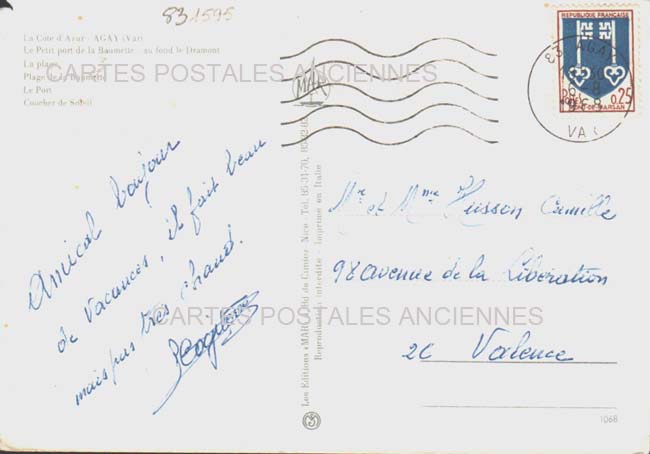 831595
La Côte d'Azur - AGAY (Var)
Le Petit port de la Baumette - au fond le Dramont
La plage
Plage de la Baumette
Le Port
Coucher de Soleil
CARTES POSTALES ANCIENNES
MAR
REPUBLIQUE FRANÇAISE
0,25
MONT-DE-MARSAN
83 AGAY
VAR
Amical bonjour
de vacances, il fait beau
mais pas très chaud.
Mr et Mme Husson Camille
98 avenue de la Libération
26 Valence
CARTES POSTALES ANCIENNES
Les Editions «MAR» Bd du Cimiez, Nice - Tél. 85-31-70,
Reproduction interdite - Imprimé en Italie
1068